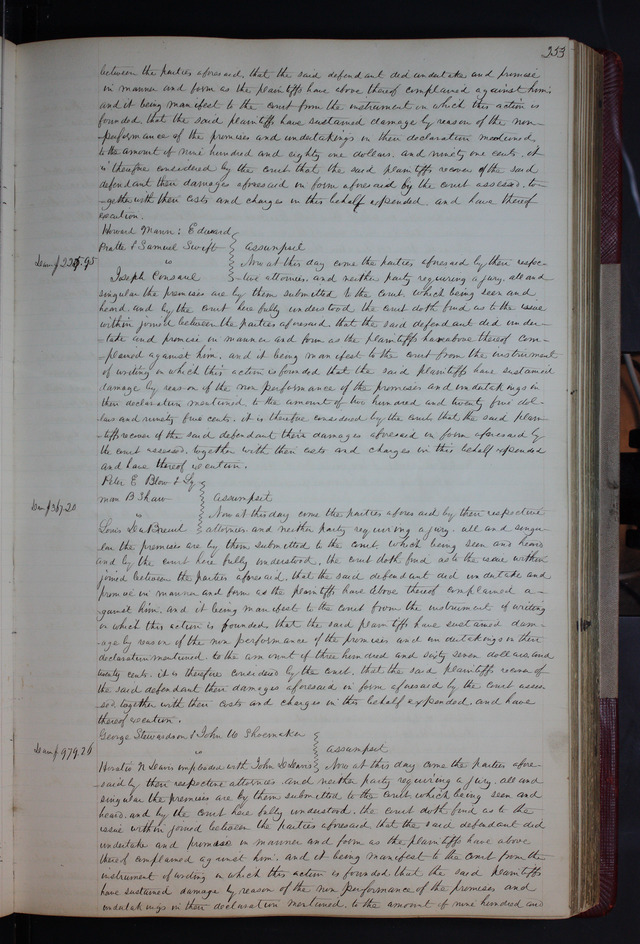 253
between the parties aforesaid, that the said defendant did undertake and promise
in manner and form as the plaintiffs have above thereof complained against him;
and it being manifest to the court from the instrument on which this action is
founded, that the said plaintiffs have sustained damage by reason of the non-
performance of the promises and undertakings in their declaration mentioned,
to the amount of nine hundred and eighty one dollars, and ninety one cents. it
is therefore considered by the court that the said plaintiffs recover of the said
defendant their damages aforesaid in form aforesaid by the court assessed, to-
-gether with their costs and charges in this behalf expended, and have thereof
execution.
Howard Mann; Edward
Pratte & Samuel Swift } assumpsit
Dam $225.95 vs Now at this day come the parties aforesaid by their respec-
Joseph Consaul -tive attornies, and neither party requiring a jury, all and
singular the premises are by them submitted to the court, which being seen and
heard, and by the court here fully understood, the court doth find as to the issue
within joined between the parties aforesaid that the said defendant did under-
-take and promise in manner and form as the plaintiffs have above thereof com-
-plained against him. and it being manifest to the court from the instrument
of writing on which this action is founded that the said plaintiffs have sustained
damage by reason of the non performance of the promises and undertakings in
their declaration mentioned, to the amount of two hundred and twenty five dol-
-lars and ninety five cents. it is therefore considered by the court that the said plain-
-tiffs recover of the said defendant their damages aforesaid in form aforesaid by
the court assessed, together with their costs and charges in this behalf expended
and have thereof execution.
Peter E Blow & Ly-
man B Shaw } assumpsit
Dam $367.20 vs Now at this day come the parties aforesaid by their respective
Louis DuBreuil attornies and neither party requiring a jury, all and singu-
-lar the premises are by them submitted to the court, which being seen and heard
and by the court here fully understood, the court doth find as to the issue within
joined between the parties aforesaid, that the said defendant did undertake and
promise in manner and form as the plaintiffs have above thereof complained a-
-gainst him. and it being manifest to the court from the instrument of writing
on which this action is founded, that the said plaintiffs have sustained dam-
-age by reason of the non performance of the promises and undertakings in their
declaration mentioned, to the amount of three hundred and sixty seven dollars and
twenty cents. it is therefore considered by the court, that the said plaintiffs recover of
the said defendant their damages aforesaid in form aforesaid by the court asses-
sed, together with their costs and charges in this behalf expended, and have
thereof execution.
George Stewardson & John W Shoemaker
Dam $979.26 vs } assumpsit
Horatio N Davis impleaded with John D Davis Now at this day come the parties afore-
said by their respective attornies, and neither party requiring a jury, all and
singular the premises are by them submitted to the court, which being seen and
heard, and by the court here fully understood, the court doth find as to the
issue within joined between the parties aforesaid that the said defendant did
undertake and promise in manner and form as the plaintiffs have above
thereof complained against him. and it being manifest to the court from the
instrument of writing on which this action is founded that the said plaintiffs
have sustained damage by reason of the non performance of the promises and
undertakings in their declaration mentioned, to the amount of nine hundred and